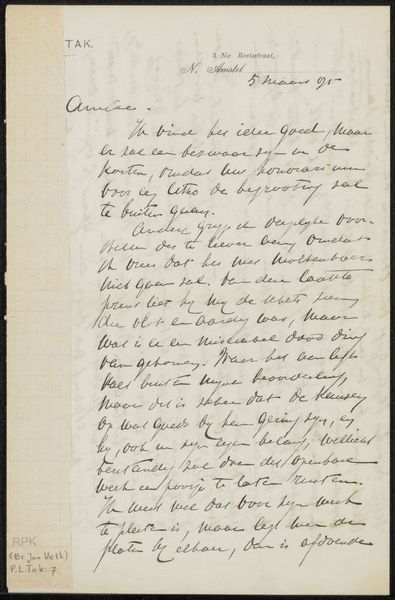 TAK.
3 Nic. Beetsstraat,
N. Amstel
5 Maart 95
Amice.
Ik vind het idee goed, maar
er zal een bezwaar zijn in de
kosten, omdat het honorarium
voor een litho de begrooting zal
te buiten gaan.
Anders grijp ik dergelijke voor-
stellen des te liever aan, omdat
ik vrees dat het met Molkenboer
niet gaan zal. Van den laatste
prent liet hij mij de schets zien
die vlot en aardig was, maar
wat is er een miserabel dood ding
van geworden. Waar het aan ligt
valt buiten mijne beoordeeling,
maar dit is zeker dat de kansen
op wat goeds bij hem gering zijn, en
hij, ook in zijn eigen belang, wellicht
verstandig zal doen dit openbare
werk een poosje te laten rusten.
Ik weet wel dat voor zijn werk
te pleiten is, maar legt men de
platen bij elkaar, dan is afdoende
RPK
(Br. Jan Veth)
P.L. Tak: 7